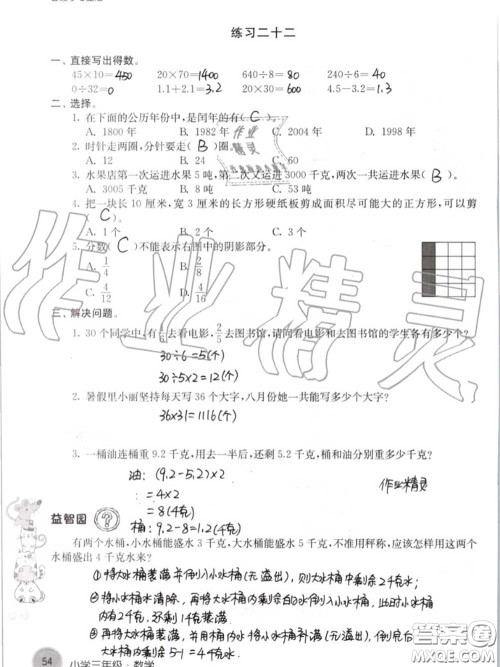 练习二十二
一、直接写出得数。
45×10=450 20×70=1400 640÷8=80 240÷6=40
0÷32=0 1.1+2.1=3.2 20×30=600 4.5-3.2=1.3
二、选择。
1. 在下面的公历年份中，是闰年的有( C )。
A. 1800 年 B. 1982 年 C. 2004 年 D. 1998 年
2. 时针走两圈，分针要走( B )圈。
A. 12 B. 24 C. 60
3. 水果店第一次运进水果 5 吨，第二次又运进 3000 千克，两次一共运进水果( B )。
A. 3005 千克 B. 8 吨 C. 53 吨
4. 把一块长 10 厘米，宽 3 厘米的长方形硬纸板剪成面积尽可能大的正方形，可以剪
( C )。
A. 1 个 B. 2 个 C. 3 个
5. 分数( C )不能表示右图中的阴影部分。
A. 1/4 B. 2/8
C. 4/12 D. 4/16
三、解决问题。
1. 30 个同学中，有1/6去看电影，2/5去图书馆，请问看电影和去图书馆的学生各有多少个?
30÷6=5(个)
30÷5×2=12(个)
2. 暑假里小丽坚持每天写 36 个大字，八月份她一共能写多少个大字?
36×31=1116(个)
3. 一桶油连桶重 9.2 千克，用去一半后，还剩 5.2 千克，桶和油分别重多少千克?
油: (9.2-5.2)×2
=4×2
=8(千克)
桶: 9.2-8=1.2(千克)
作业精灵
益智园
有两个水桶，小水桶能盛水 3 千克，大水桶能盛水 5 千克，不准用秤称，应该怎样用这两个
水桶盛出 4 千克水来?
①将大水桶装满并倒入小水桶(无溢出)，则大水桶中剩余2千克水;
②将小桶水清除，再将大水桶内剩余的2千克水倒入小水桶，此时小水桶
内有2千克，还剩1千克装满
③再将大水桶装满，并用桶内水将小水桶补满(无溢)，倒充后在
大水桶内剩余5-1=4千克水
54
小学三年级·数学
作业精灵
答案圈